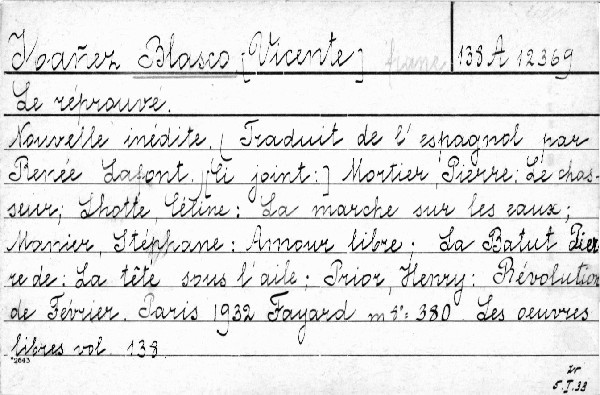 Ybañez Blasco, [Vicente] franc 138 A 12369
Le réprouvé.
Nouvelle inédite. (Traduit de l'espagnol par
Renée Lafont.) [Ci joint:] Mortier, Pierre: Le chas-
seur; Lhotte, Céline: La marche sur les eaux;
Manier, Stéphane: Amour libre; La Batut Pier
re de: La tête sous l'aile; Prior, Henry: Révolution
de Février. Paris 1932 Fayard 380 Les oeuvres
libres vol. 138.
*2643
5.I.33